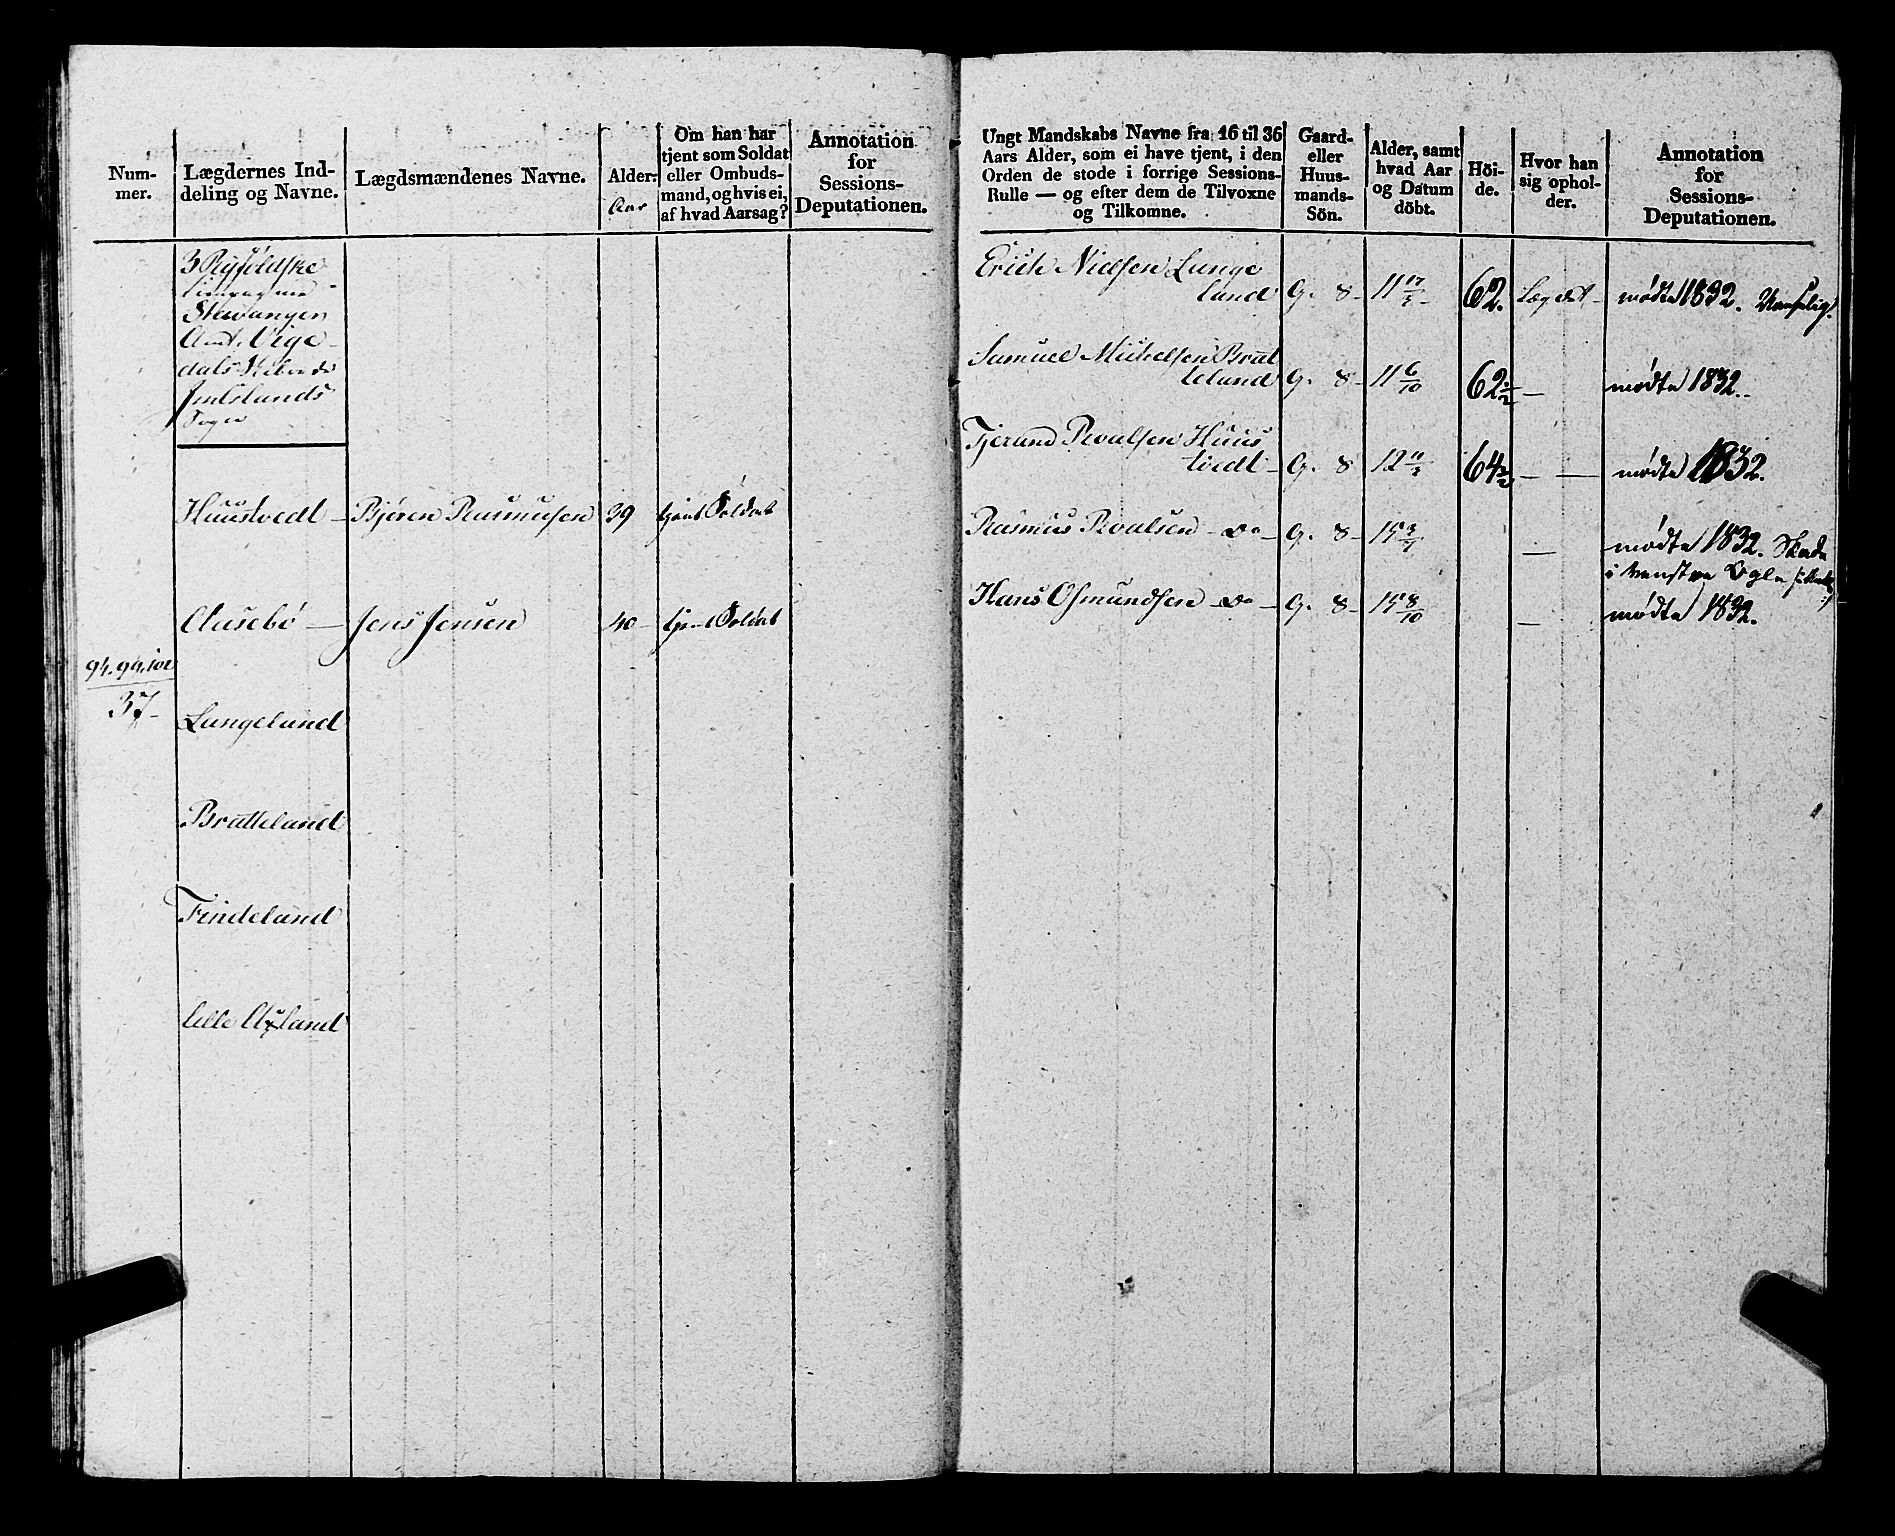 Num-
mer.
Lægdernes Ind-
deling og Navne.
Lægdsmændenes Navne.
Alder.
Aar
Om han har
tjent som Soldat
eller Ombuds-
mand, og hvis ei,
af hvad Aarsag?
Annotation
for
Sessions-
Deputationen.
3 Ryfoldske
Stavanger
Amt. Vige-
dals
Imslands
Sogn
Huustvedt – Bjøren Rasmusen 39 tjent Soldat
Aasebø – Jens Jensen 40 – tjent Soldat
94. 94.
37 –
Langeland
Bratteland
Findeland
Lille
Ungt Mandskabs Navne fra 16 til 36
Aars Alder, som ei have tjent, i den
Orden de stode i forrige Sessions-
Rulle — og efter dem de Tilvoxne
og Tilkomne.
Gaard-
eller
Huus-
mands-
Sön.
Alder, samt
hvad Aar
og Datum
döbt.
Höi-
de.
Hvor han
sig ophol-
der.
Annotation
for
Sessions-
Deputationen.
Erich Nielsen Lange
land G. 8 – 11 17/3 – 62. Lægdet – mødte 1832. Vanfelig.
Samuel Michelsen Brat
teland G. 8 – 11 6/10 62½ — mødte 1832.
Tjerand Roalsen Huus
tvedt – G. 8 12 11/3 64 — — mødte 1832.
Rasmus Roalsen – do – G. 8 – 15 3/7 — mødte 1832. Skade
i venstre
Hans Osmundsen – do – G. 8 – 15 8/10 — mødte 1832.